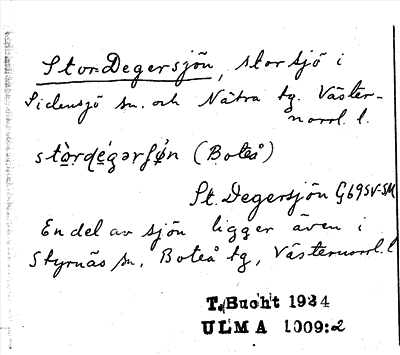 StorDegersjön, stor sjö i
Sidensjö sn. och Nätra tg. Väster-
norrl. l.
stòrdégərʃǿn (Boteå)
St. Degersjön G69SV-SM
En del av sjön ligger även i
Styrnäs sn, Boteå tg, Västernorrl. l
T. Bucht 1934
ULMA 1009:2